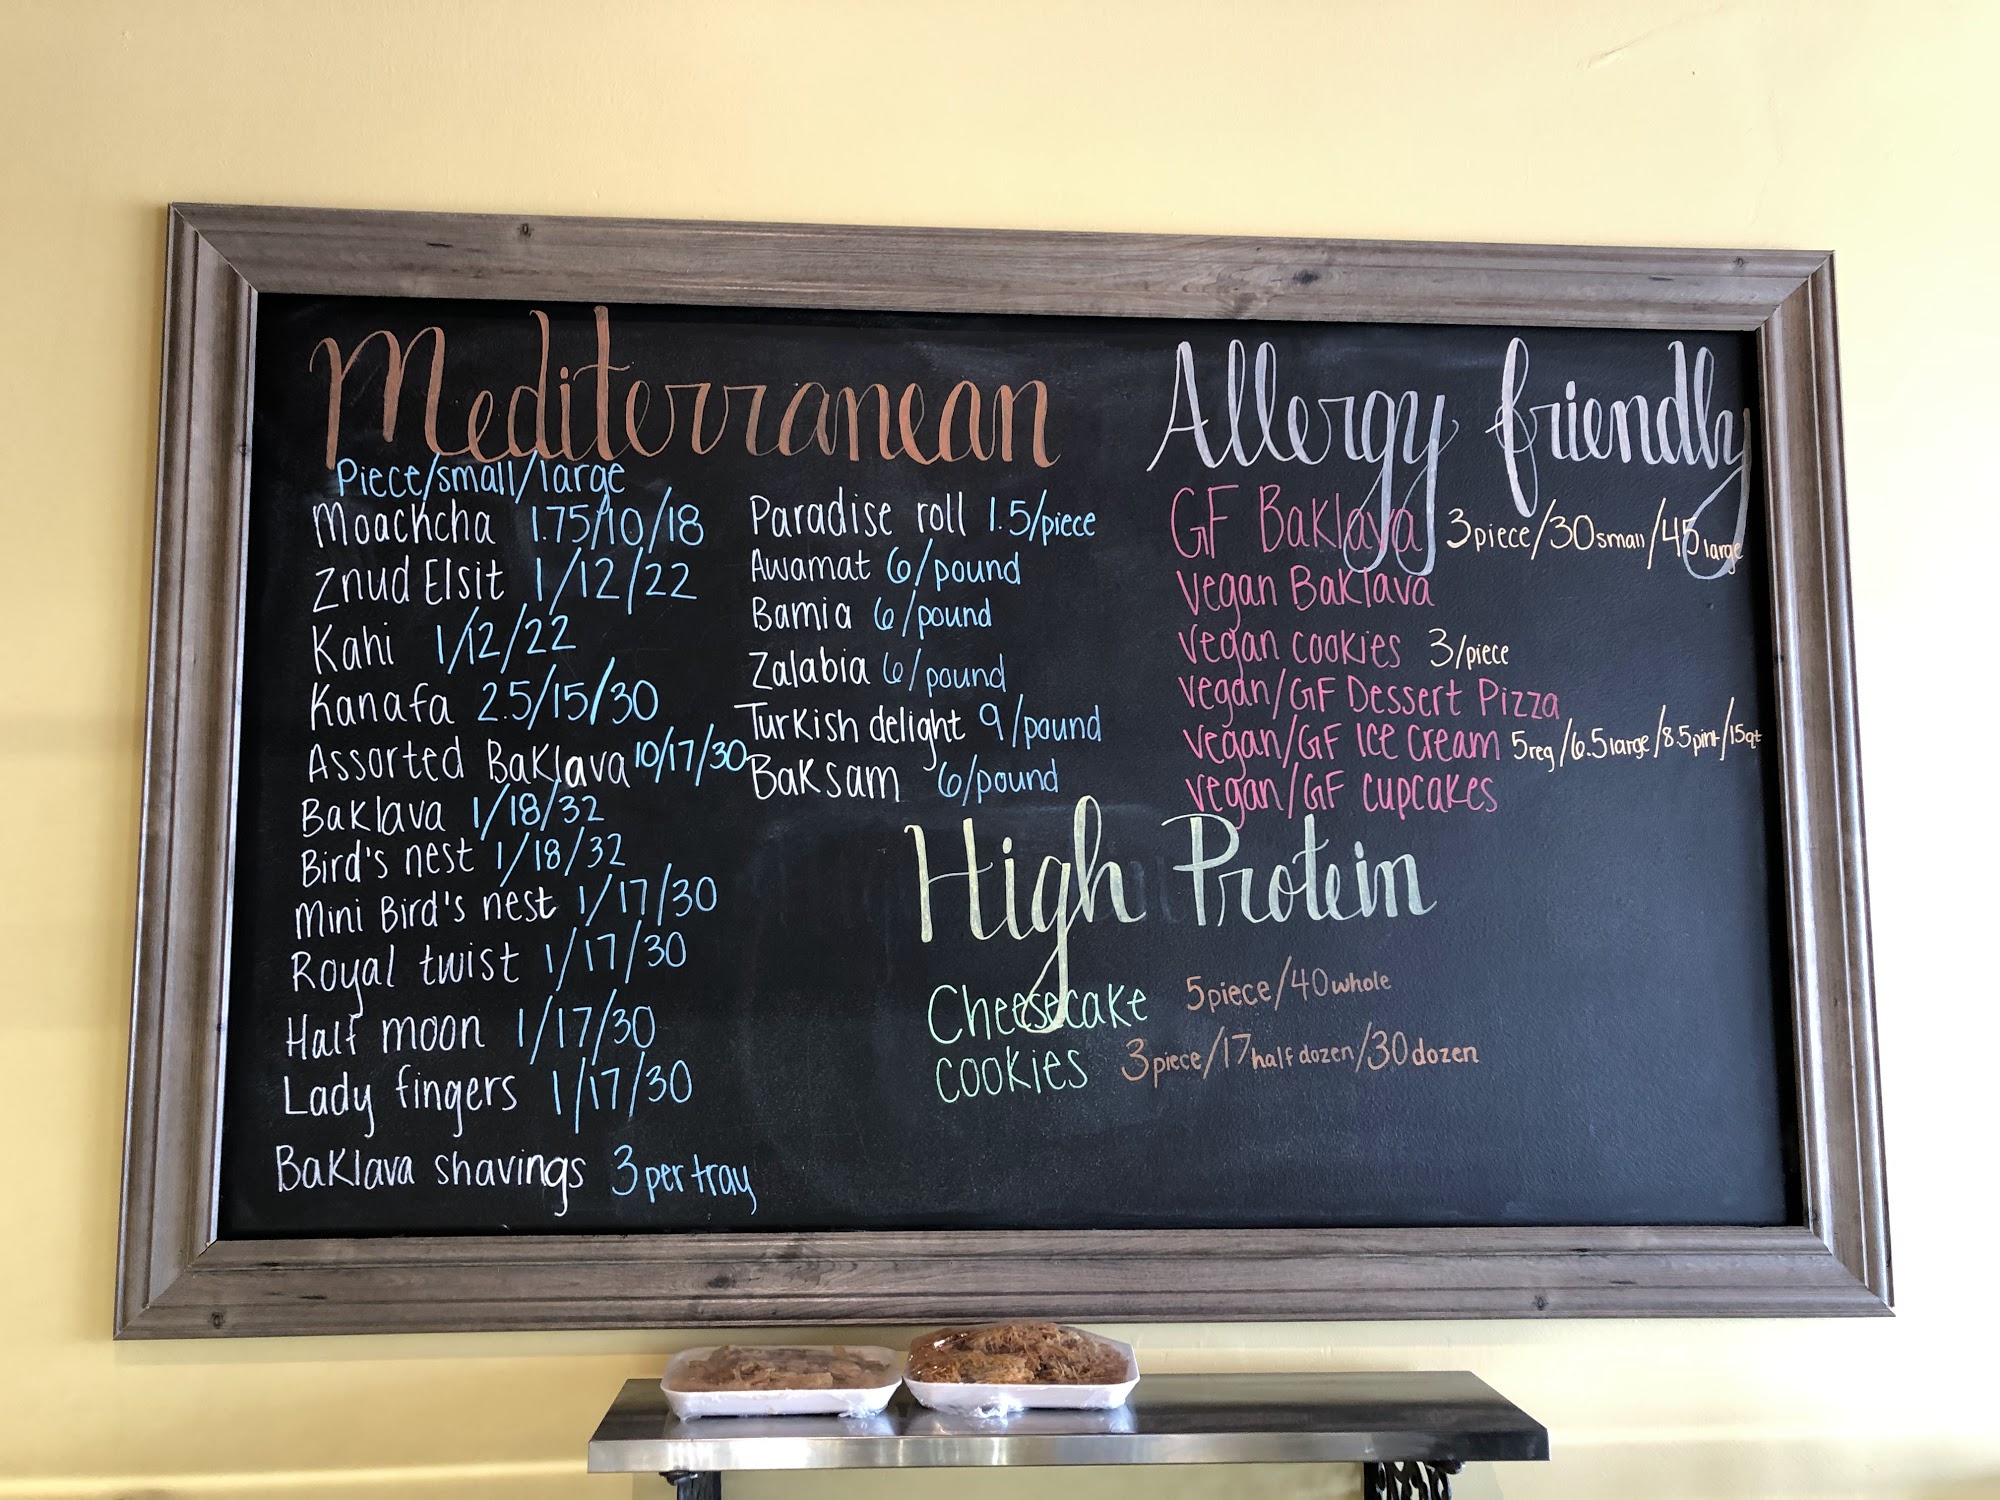 Mediterranean
Piece/small/large
Moachcha 1.75/10/18
Znud Elsit 1/12/22
Kahi 1/12/22
Kanafa 2.5/15/30
Assorted Baklava 10/17/30
Baklava 1/18/32
Bird's nest 1/18/32
Mini Bird's nest 1/17/30
Royal twist 1/17/30
Half moon 1/17/30
Lady fingers 1/17/30
Baklava shavings 3 per tray
Paradise roll 1.5/piece
Awamat 6/pound
Bamia 6/pound
Zalabia 6/pound
Turkish delight 9/pound
Baksam 6/pound
Allergy friendly
GF Baklava 3piece/30small/45large
Vegan Baklava
Vegan cookies 3/piece
Vegan/GF Dessert Pizza
Vegan/GF Ice Cream 5reg/6.5large/8.5pint/15qt
Vegan/GF cupcakes
High Protein
Cheesecake 5piece/40whole
cookies 3piece/17half dozen/30dozen